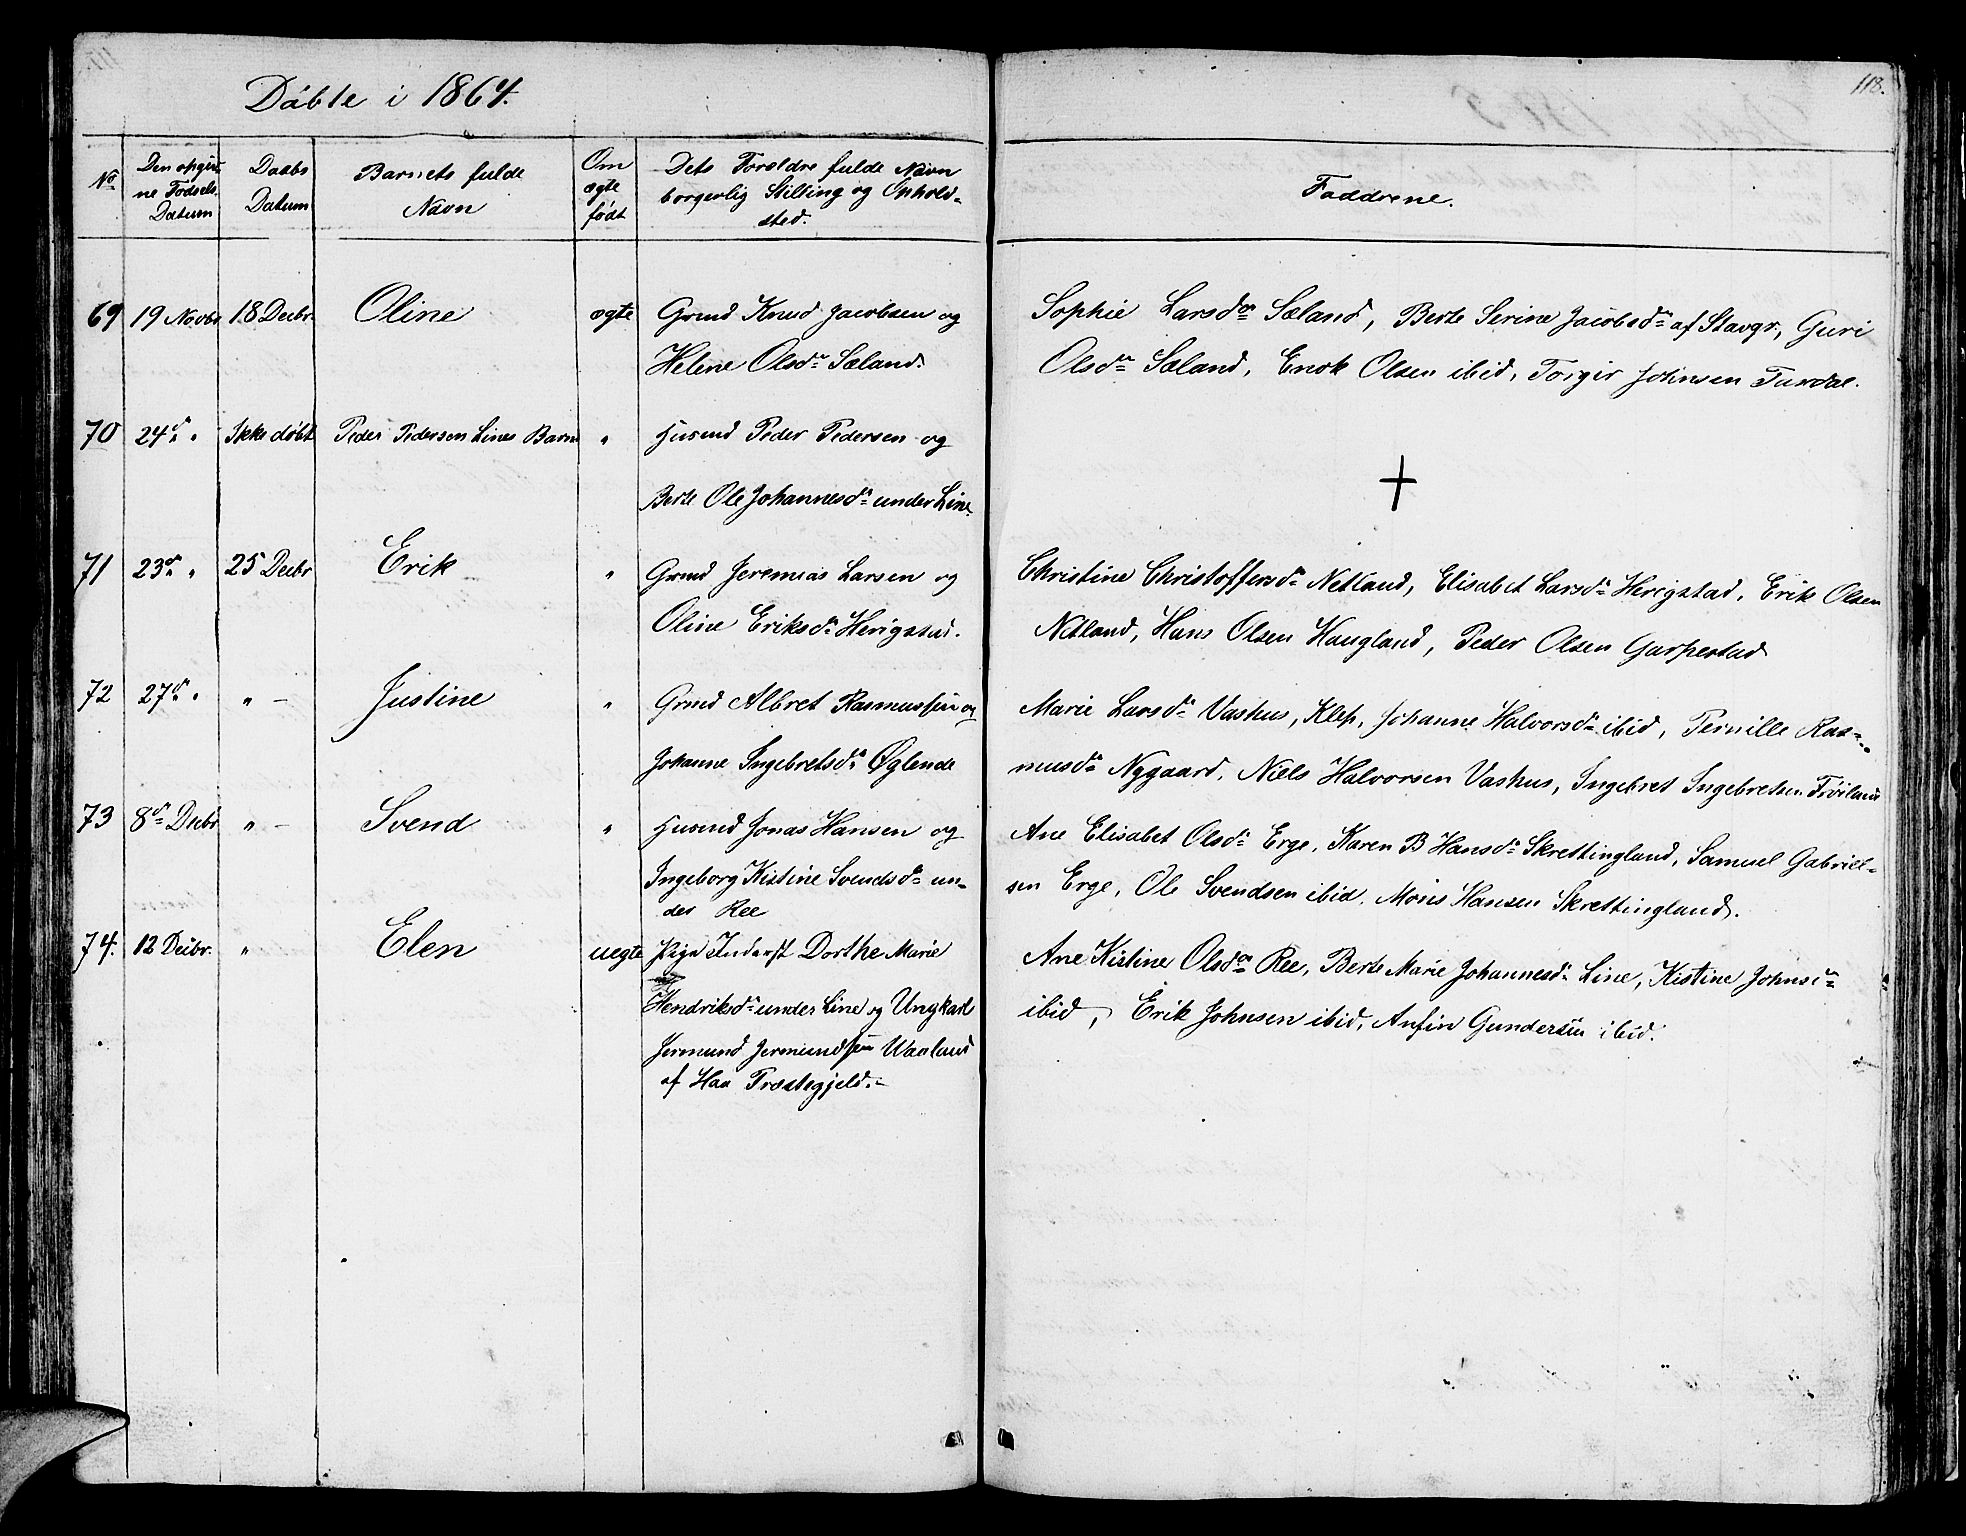 118.
Döbte i 1864.
No
Den opgiv-
ne Fødsels
Datum
Daabs
Datum
Barnets fulde
Navn
Om
ægte
født
Dets Forældre fulde Navn
borgerlig Stilling og Ophold-
sted.
Faddrene.
69 19 Novbr 18 Decbr. Oline ægte Grmd Knud Jacobsen og
Helene Olsdr Sæland.
Sophie Larsdr Sæland, Berte Serine Jacobsdr af Stavgr, Guri
Olsdr Sæland, Enok Olsen ibid, Torger Johnsen Fundal.
70 24de " Ikke døbt Peder Pedersen Lines Barn " Husmd Peder Pedersen og
Berte Ole Johannesdr under Line.
+
71 23de " 25 Decbr Erik " Grmd Jeremias Larsen og
Oline Eriksdr Herigstad.
Christine Christoffersdr Netland, Elisabet Larsdr Herigstad, Erik Olsen
Netland, Hans Olsen Haugland, Peder Olsen Garpestad
72 27de " " - Justine " Grmd Albret Rasmussen og
Johanne Ingebretsdr Øglende
Marie Larsdr Vashus, Klep, Johanne Halvorsdr ibid, Pernille Ras-
musdr Nygaard, Niels Halvorsen Vashus, Ingebret Ingebretsen Fröiland
73 8de Decbr " - Svend " Husmd Jonas Hansen og
Ingeborg Kistine Svendsdr un-
der Ree
Ane Elisabet Olsdr Erge, Karen B Hansdr Skrettingland, Samuel Gabriel-
sen Erge, Ole Svendsen ibid, Mons Hansen Skrettingland.
74. 12 Decbr. " Elen uegte Pige Inderst Dorthe Marie
Hendriksdr under Line og Ungkarl
Jermund Jermundsen Waaland
af Haa Præstegjeld.-
Ane Kistine Olsdr Ree, Berte Marie Johannesdr Line, Kistine Johnsdr
ibid, Erik Johnsen ibid, Anfin Gundersen ibid.